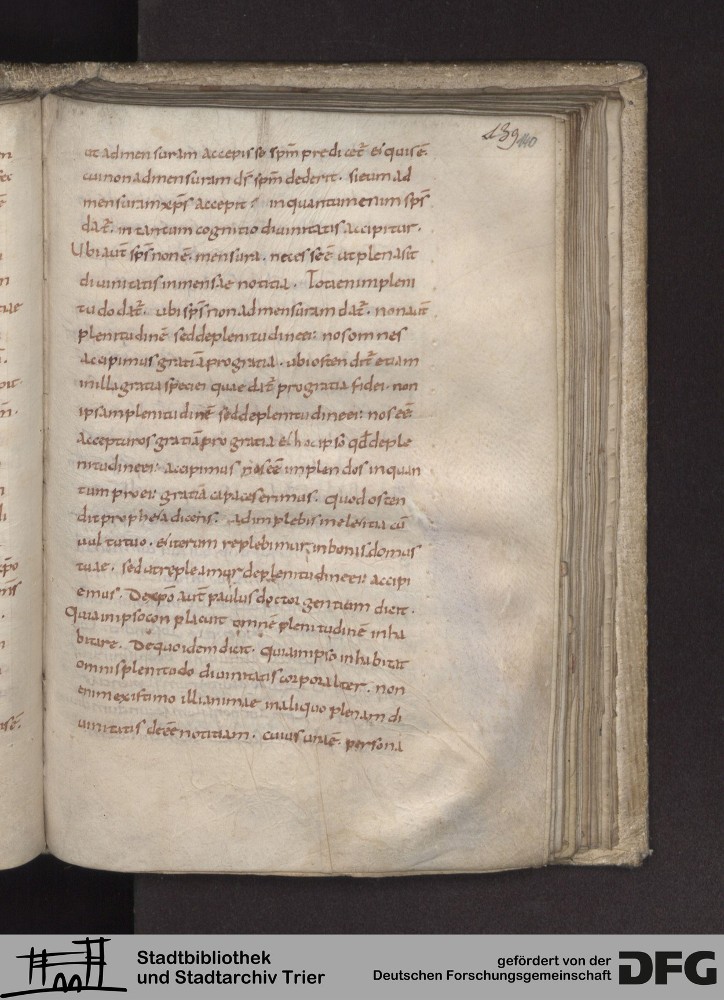 139 140
ut ad mensuram accepisse spm̄ predicet̄ ei qui sē
cui non ad mensuram ds̄ spm̄ dederit. si eum ad
mensuram xp̄s accepit? in quantum enim sps̄
dat̄. in tantum cognitio diuinitatis accipitur.
Ubi aut̄ sps̄ non ē mensura. necesse ē ut plena sit
diuinitatis inmensae noticia. Tota en im pleni
tudo dat̄. ubi sps̄ non ad mensuram dat̄. non aut̄
plenitudinē sed de plenitudine ei: nos omnes
accipimus gratiā pro gratia. ubi ostendit̄ etiam
in illa gratia speciei quae dat̄ pro gratia fidei. non
ipsam plenitudinē sed de plenitudine ei: nos eē
accepturos gratiā pro gratia et hoc ipsō qd̄ de ple
nitudine ei: accipimus nos eē implendos in quan
tum pro ei: gratia capaces erimus. quod osten
dit propheta dicens. adimplebis me letitia cū
uultu tuo. et iterum replebimur in bonis domus
tuae. sed ut repleamur de plenitudine ei: accipi
emus. De xpō aut̄ paulus doctor gentium dicit.
Quia in ipso conplacuit omnē plenitudinē inha
bitare. De quo idem dicit. quia in ipso inhabitat
omnis plenitudo diuinitatis corporaliter. non
enim existimo illi animae in aliquo plenam di
uinitatis deeē notitiam. cuius una ē persona
Stadtbibliothek
und Stadtarchiv Trier
gefördert von der
Deutschen Forschungsgemeinschaft
DFG